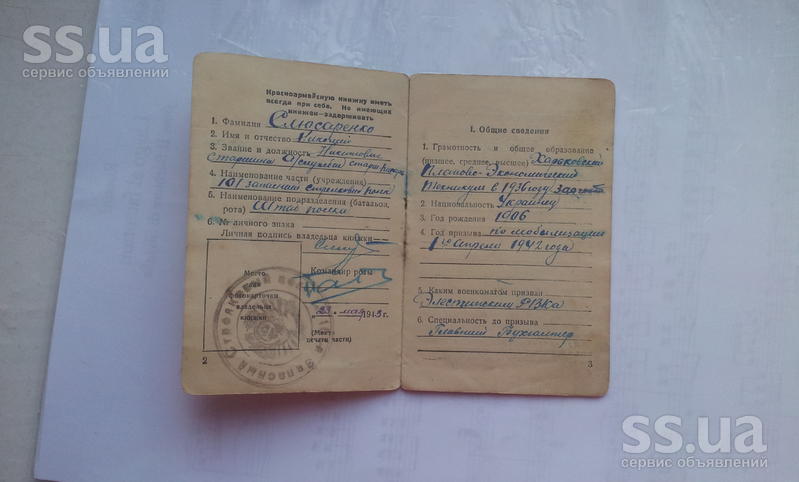 ss.ua
сервис объявлений
Красноармейскую книжку иметь
всегда при себе. Не имеющих
книжек—задерживать
1. Фамилия Слюсаренко
2. Имя и отчество Николай
3. Звание и должность Никитович
Старшина а/службы старш. писарь
4. Наименование части (учреждения)
101 запасный стрелковый полк
5. Наименование подразделения (батальон,
рота) Штаб полка
6. № личного знака
Личная подпись владельца книжки
Место
для
фотокарточки
владельца
книжки
Командир роты
„23“ мая 1945 г.
(Место
печати части)
2
I. Общие сведения
1. Грамотность и общее образование
(низшее, среднее, высшее) Харьковский
Планово-Экономический
Техникум в 1936 году заочно
2. Национальность Украинец
3. Год рождения 1906
4. Год призыва по мобилизации
1го апреля 1942 года
5. Каким военкоматом призван
Элистинским РВКа
6. Специальность до призыва
Главный Бухгалтер
3
ss.ua
сервис объявлений